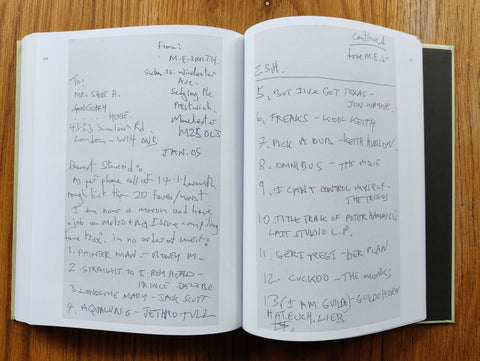 From:
M.E. SMITH.
Ave.
Sedgley Pk.
Prestwich.
Manchester
M25 0LJ
JAN. 05
To:
MR. STEE A.
HOUSE.
43-53, Sinclair Rd.
London - W14
As per phone call of 17-1- herewith
rough list top 20 faves/most
I am now a moron and have
a job on Metro + Big Issue compiling
fave trax. in no order of merit:-
1. PAINTER MAN - BONEY M.
2. STRAIGHT TO I-ROY HEAD -
PRINCE JAZZBO
3. LONESOME MARY - JACK SCOTT
4. AQUALUNG - JETHRO TULL
Continued
from M.E.S
2. S.H.
5, BUT I'VE GOT TEXAS -
JON WAYNE.
6, FREAKS - KOOL KEITH
7. PICK A DUB - KEITH HUDSON.
8. OMNIBUS - THE MOVE
9. I CAN'T CONTROL MYSELF -
THE TROGGS
10. TITLE TRACK OF PETER HAMMILL'S
LAST STUDIO L.P.
11. GERI REGGI - DER PLAN
12. CUCKOO - THE MONKS
13 (I AM GUILDO) - GUILDO HORN
HAT EUCH LIEB